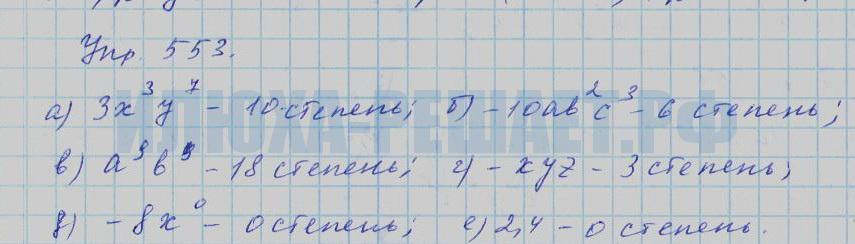 Упр. 553.
а) 3x³y⁷ - 10 степень; б) -10ab²c³ - 6 степень;
в) a⁹b⁹ - 18 степень; г) -xyz - 3 степень;
д) -8x⁰ - 0 степень; е) 2,4 - 0 степень.
ИЛЮХА-РЕШАЕТ.РФ